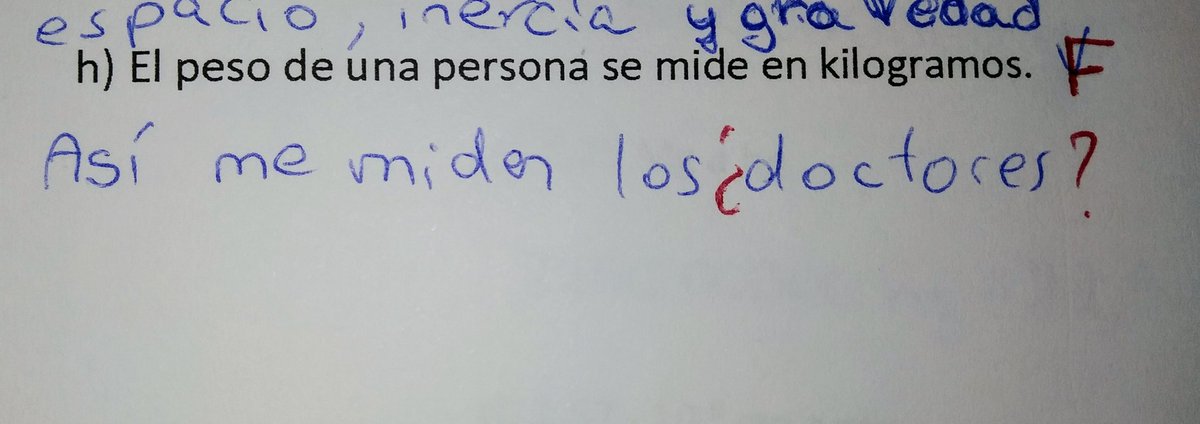 espacio, inercia y gravedad
h) El peso de una persona se mide en kilogramos. F
Así me miden los ¿doctores?